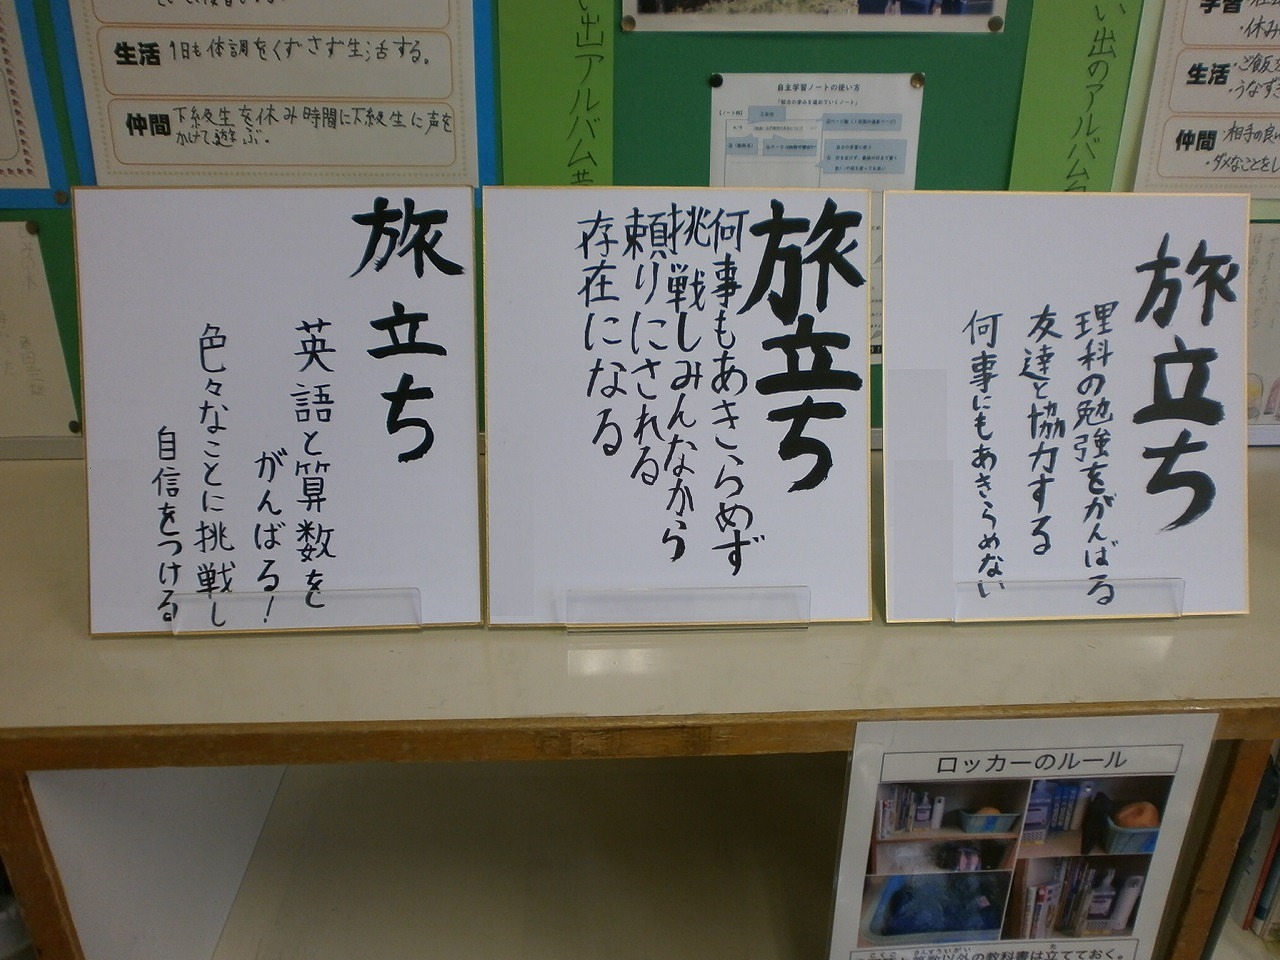 生活 1日も体調をくずさず生活する。
仲間 下級生を休み時間に下級生に声を
かけて遊ぶ。
い出アルバム
自主学習ノートの使い方
い出のアルバム
学習
・休み
生活 ・ご飯を
・うなず
仲間 ・相手の良
・ダメなことをし
旅立ち
英語と算数を
がんばる!
色々なことに挑戦し
自信をつける
旅立ち
何事もあきらめず
挑戦しみんなから
頼りにされる
存在になる
旅立ち
理科の勉強をがんばる
友達と協力する
何事にもあきらめない
ロッカーのルール
以外の教科書は立てておく。